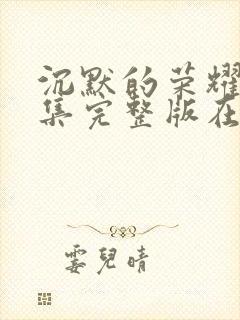 沉默的荣耀
集完整版在
霎儿晴